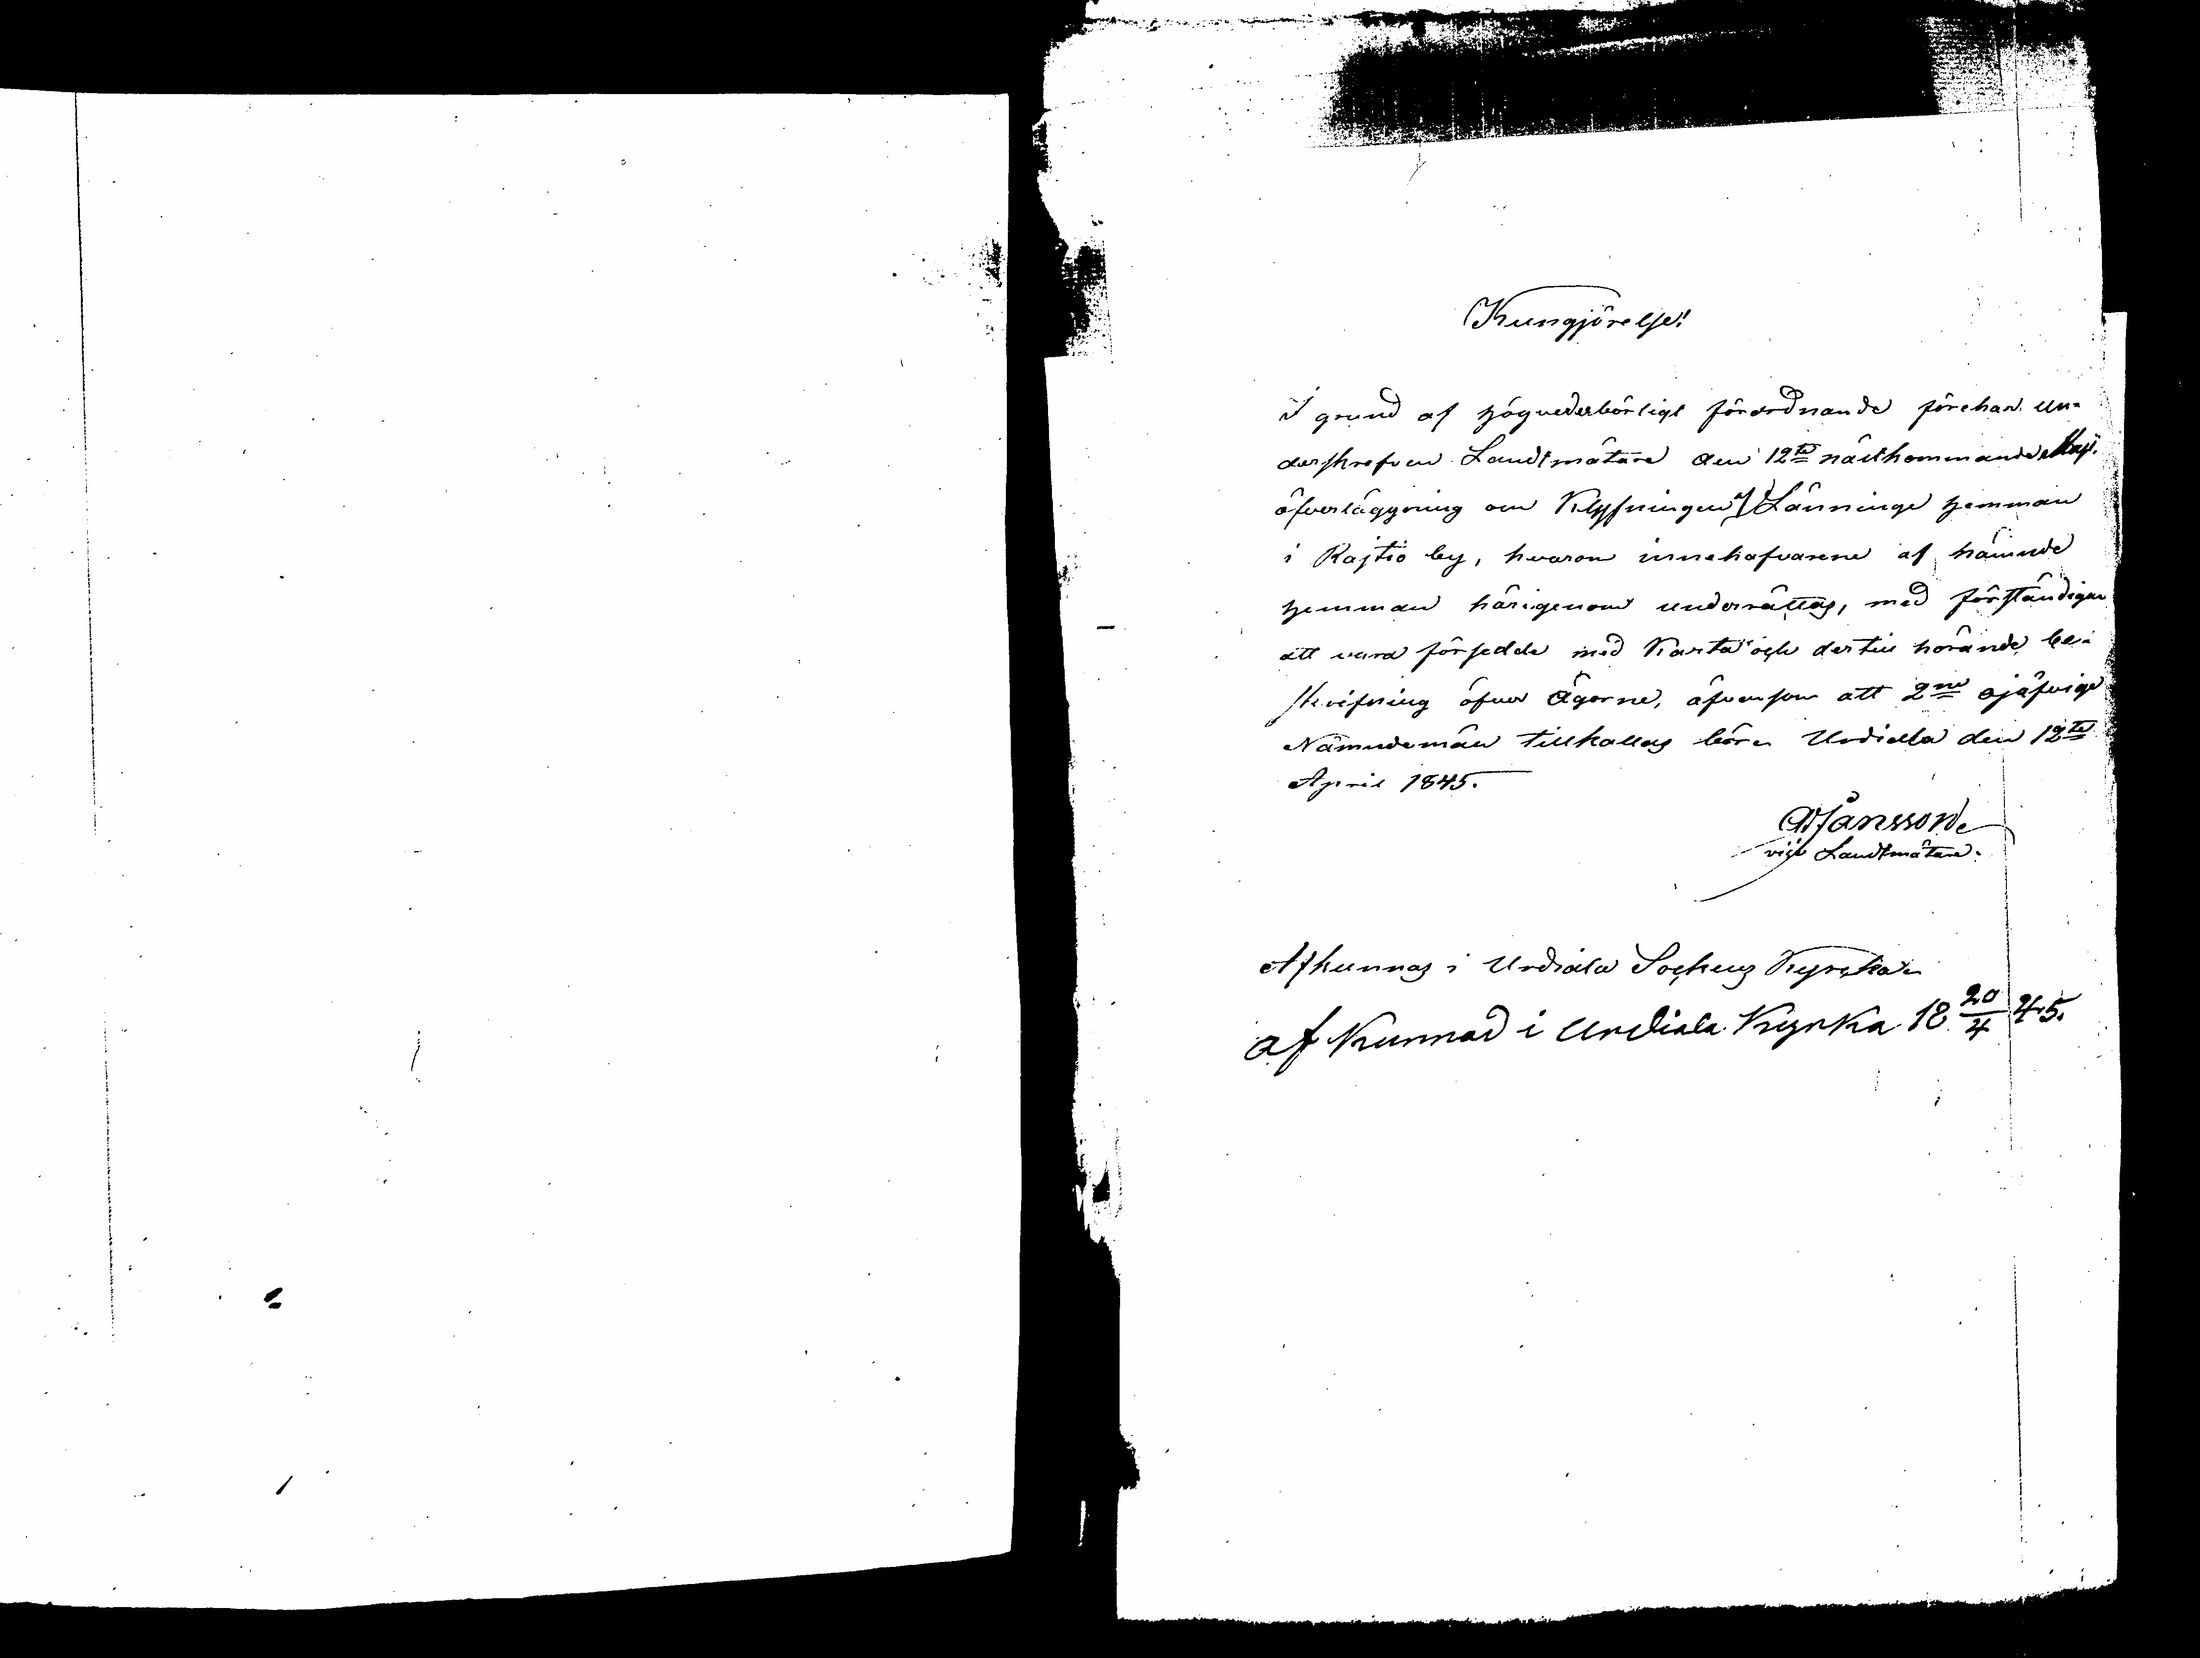 Kungjörelse!
I grund af högvederbörligt förordnande förehar un-
derskrefven Landtmätare den 12te nästkommande Maji
öfverläggning om Klyfningen af Länninge hemman
i Rajtio by, hvarom innehafvarene af nämnde
hemman härigenom underrättas, med förständigan
att vara försedde med Karta och dertill hörande be-
skrifning öfver ägorne, äfvensom att 2ne ojäfvige
Nämndemän tillkallas böra Urdiala den 12te
April 1845.
Jansson
vice Landtmätare.
Afkunnas i Urdiala Sockens Kyrka
af Kunnad i Urdiala Kyrka 18 20/4 45.